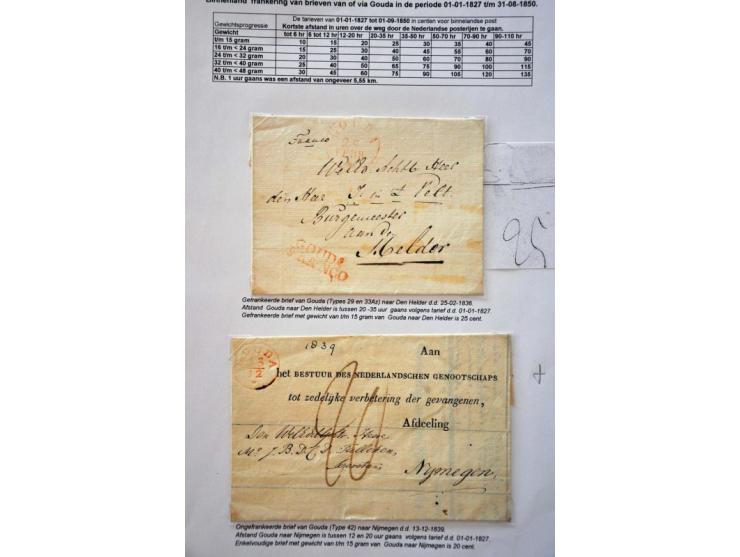 Binnenland frankering van brieven van of via Gouda in de periode 01-01-1827 t/m 31-08-1850.
De tarieven van 01-01-1827 tot 01-09-1850 in centen voor binnenlandse post
Gewichtsprogressie Kortste afstand in uren over de weg door de Nederlandse posterijen te gaan.
Gewicht tot 6 hr 6 tot 12 hr 12-20 hr 20-35 hr 35-50 hr 50-70 hr 70-90 hr 90-110 hr
t/m 15 gram 10 15 20 25 30 35 40 45
16 t/m < 24 gram 15 20 30 40 45 55 60 70
24 t/m < 32 gram 20 30 40 50 60 70 80 90
32 t/m < 40 gram 25 40 50 65 75 90 100 115
40 t/m < 48 gram 30 45 60 75 90 105 120 135
N.B. 1 uur gaans was een afstand van ongeveer 5,55 km.
Franco
GOUDA
Heer
den Heer Pelt.
Burgemeester
aan de
Helder
GOUDA
FRANCO
25
Gefrankeerde brief van Gouda (Types 29 en 33Az) naar Den Helder d.d. 25-02-1836.
Afstand Gouda naar Den Helder is tussen 20 -35 uur gaans volgens tarief d.d. 01-01-1827.
Gefrankeerde brief met gewicht van t/m 15 gram van Gouda naar Den Helder is 25 cent.
1839
Aan
het BESTUUR DES NEDERLANDSCHEN GENOOTSCHAPS
tot zedelijke verbetering der gevangenen,
Afdeeling
20
Nijmegen,
Ongefrankeerde brief van Gouda (Type 42) naar Nijmegen d.d. 13-12-1839.
Afstand Gouda naar Nijmegen is tussen 12 en 20 uur gaans volgens tarief d.d. 01-01-1827.
Enkelvoudige brief met gewicht van t/m 15 gram van Gouda naar Nijmegen is 20 cent.